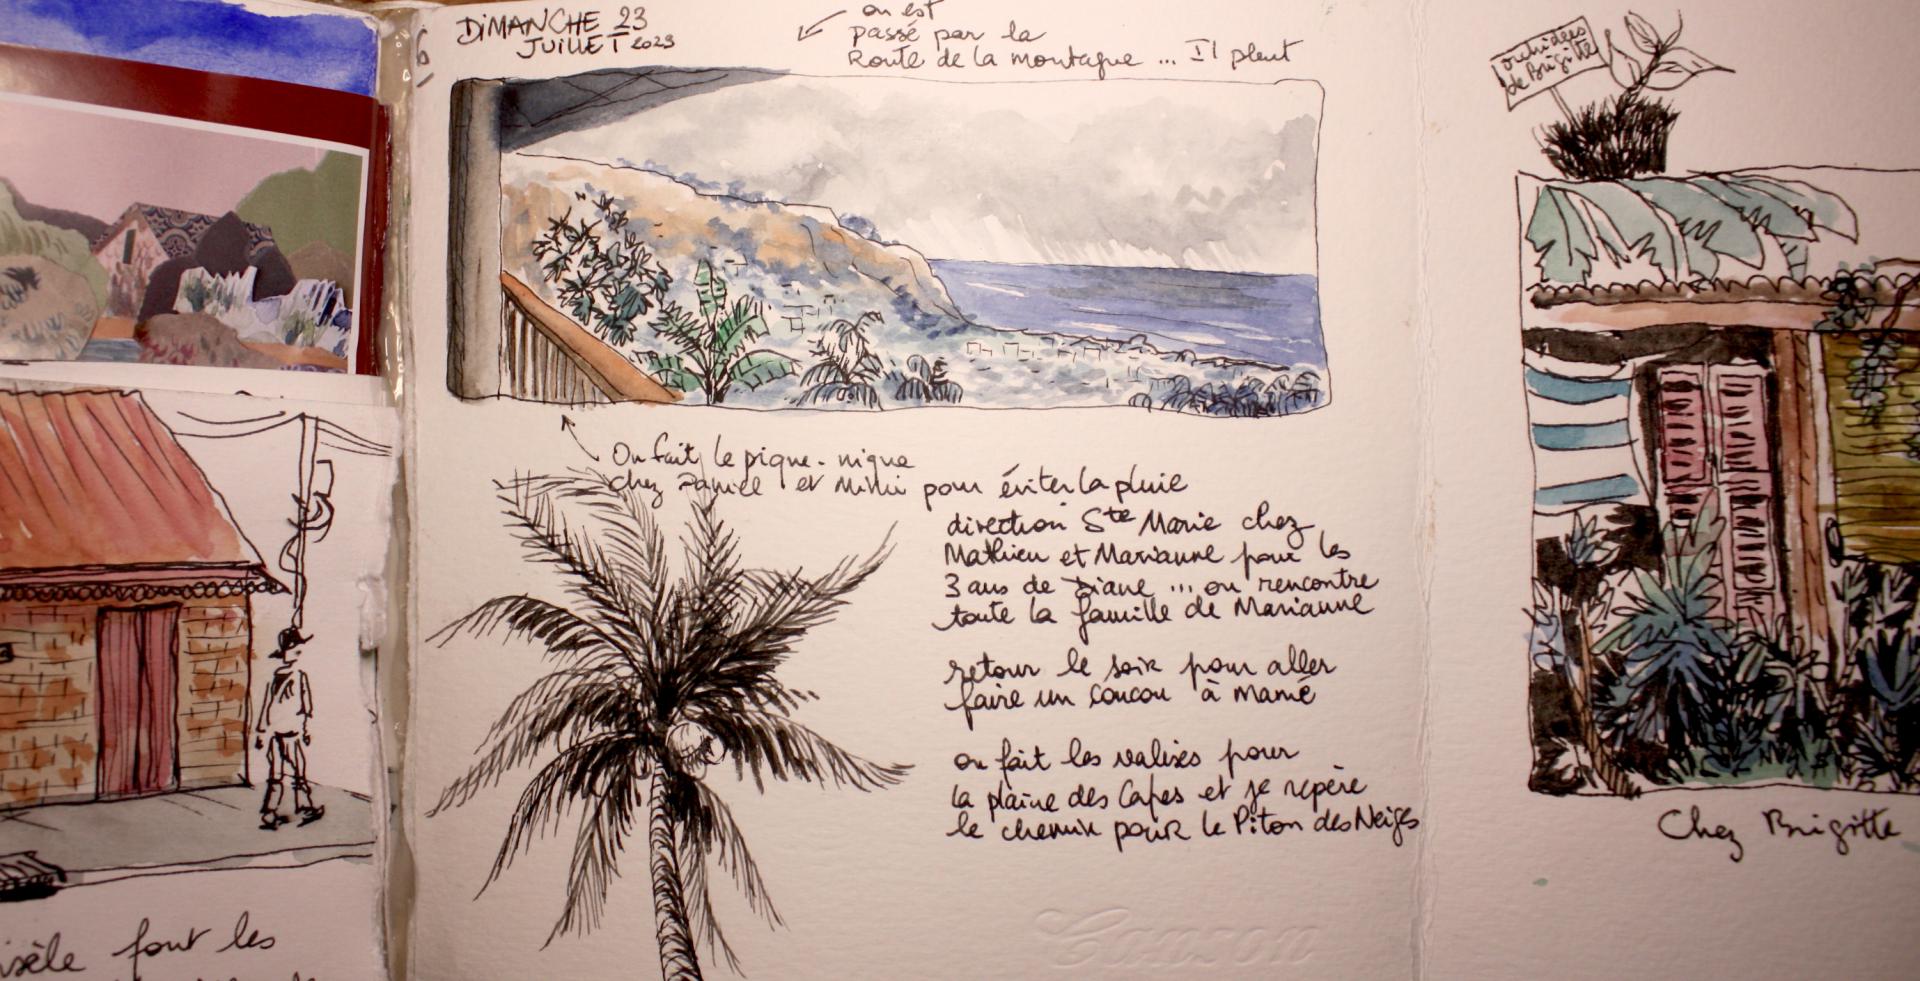 DIMANCHE 23
JUILLET 2023
on est
passé par la
Route de la montagne ... Il pleut
On fait le pique-nique
chez et Mimi pour éviter la pluie
direction Ste Marie chez
Mathieu et Marianne pour les
3 ans de Diane ... on rencontre
toute la famille de Marianne
retour le soir pour aller
faire un coucou à mamé
on fait les valises pour
la plaine des Cafes et je repère
le chemin pour le Piton des Neiges
Canson
orchidées
de Brigitte
Chez Brigitte
isèle font les